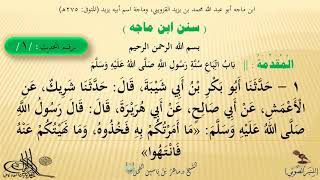 ابن ماجه أبو عبد الله محمد بن يزيد القزويني، وماجة اسم أبيه يزيد (المتوفى: ٢٧٥هـ)
( سنن ابن ماجه )
برقم الحديث: / ١ /
بسم الله الرحمن الرحيم
المقدمة :||
بَابُ اتِّبَاعِ سُنَّةِ رَسُولِ اللَّهِ صَلَّى اللَّهُ عَلَيْهِ وَسَلَّمَ
١ - حَدَّثَنَا أَبُو بَكْرِ بْنُ أَبِي شَيْبَةَ، قَالَ: حَدَّثَنَا شَرِيكٌ، عَنِ
الْأَعْمَشِ، عَنْ أَبِي صَالِحٍ، عَنْ أَبِي هُرَيْرَةَ، قَالَ: قَالَ رَسُولُ اللَّهِ
صَلَّى اللَّهُ عَلَيْهِ وَسَلَّمَ: «مَا أَمَرْتُكُمْ بِهِ فَخُذُوهُ، وَمَا نَهَيْتُكُمْ عَنْهُ
فَانْتَهُوا»